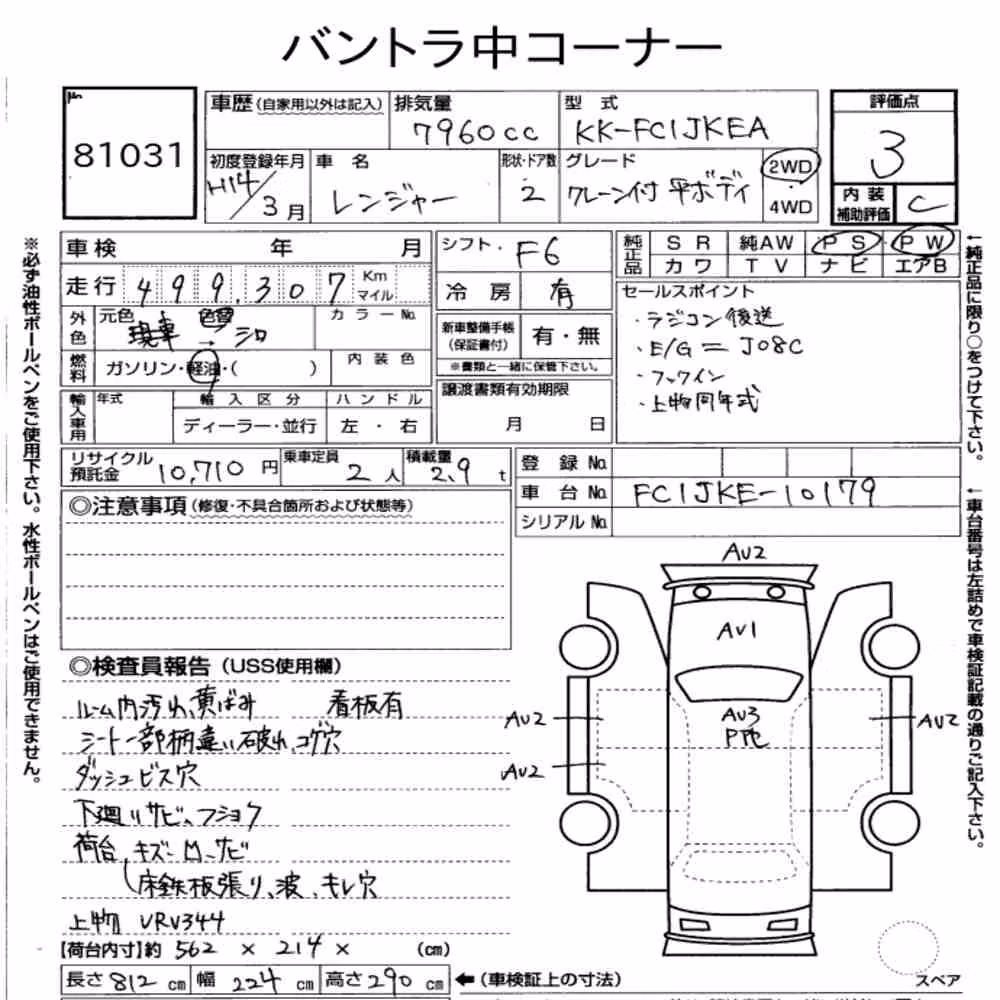 バントラ中コーナー
81031
車歴 (自家用以外は記入)
排気量
7960cc
型式
KK-FC1JKEA
評価点
3
初度登録年月
H14/3月
車名
レンジャー
形状・ドア数
2
グレード
クレーン付 平ボディ
2WD
・
4WD
内装補助評価
C
車検 年 月
シフト F6
純正品
SR 純AW PS PW
カワ TV ナビ エアB
走行 499.307 Km マイル
冷房 有
セールスポイント
・ラジコン後送
・E/G = J08C
・フックイン
・上物同年式
外色
元色 色替
現車 → シロ
カラーNo.
新車整備手帳(保証書付) 有・無
※書類と一緒に保管下さい。
燃料
ガソリン・軽油・( )
内装色
譲渡書類有効期限
月 日
輸入車用
年式
輸入区分
ハンドル
ディーラー・並行
左・右
リサイクル預託金 10,710円
乗車定員 2人
積載量 2.9t
登録No.
車台No. FC1JKE-10179
シリアルNo.
◎注意事項 (修復・不具合箇所および状態等)
◎検査員報告 (USS使用欄)
ルーム内汚れ、黄ばみ 看板有
シート一部柄違い破れ、コゲ穴
ダッシュビス穴
下廻りサビ、フショク
荷台 キズ~凹~サビ
床鉄板張り、波、キレ穴
上物 URV344
【荷台内寸】約 562 × 214 × (cm)
長さ812cm 幅 224cm 高さ290cm
← (車検証上の寸法)
AU2
AU1
AU3
P他
AU2
AU2
AU2
スペア
※必ず油性ボールペンをご使用下さい。水性ボールペンはご使用できません。
←純正品に限り○をつけて下さい。
←車台番号は左詰めで車検証記載の通りご記入下さい。